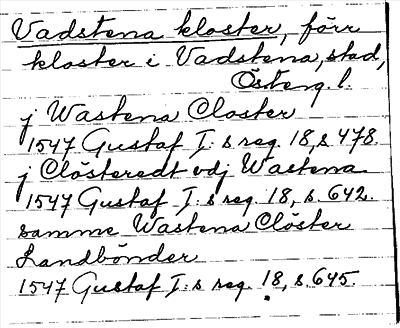 Vadstena kloster, förr
kloster i Vadstena, stad,
Österg. l.
j Wastena Closter
1547 Gustaf I:s reg. 18, s. 478.
j Clösteredt vdj Wastena
1547 Gustaf I:s reg. 18, s. 642.
samme Wastena Clöster
Landbönder
1547 Gustaf I:s reg. 18, s. 645.